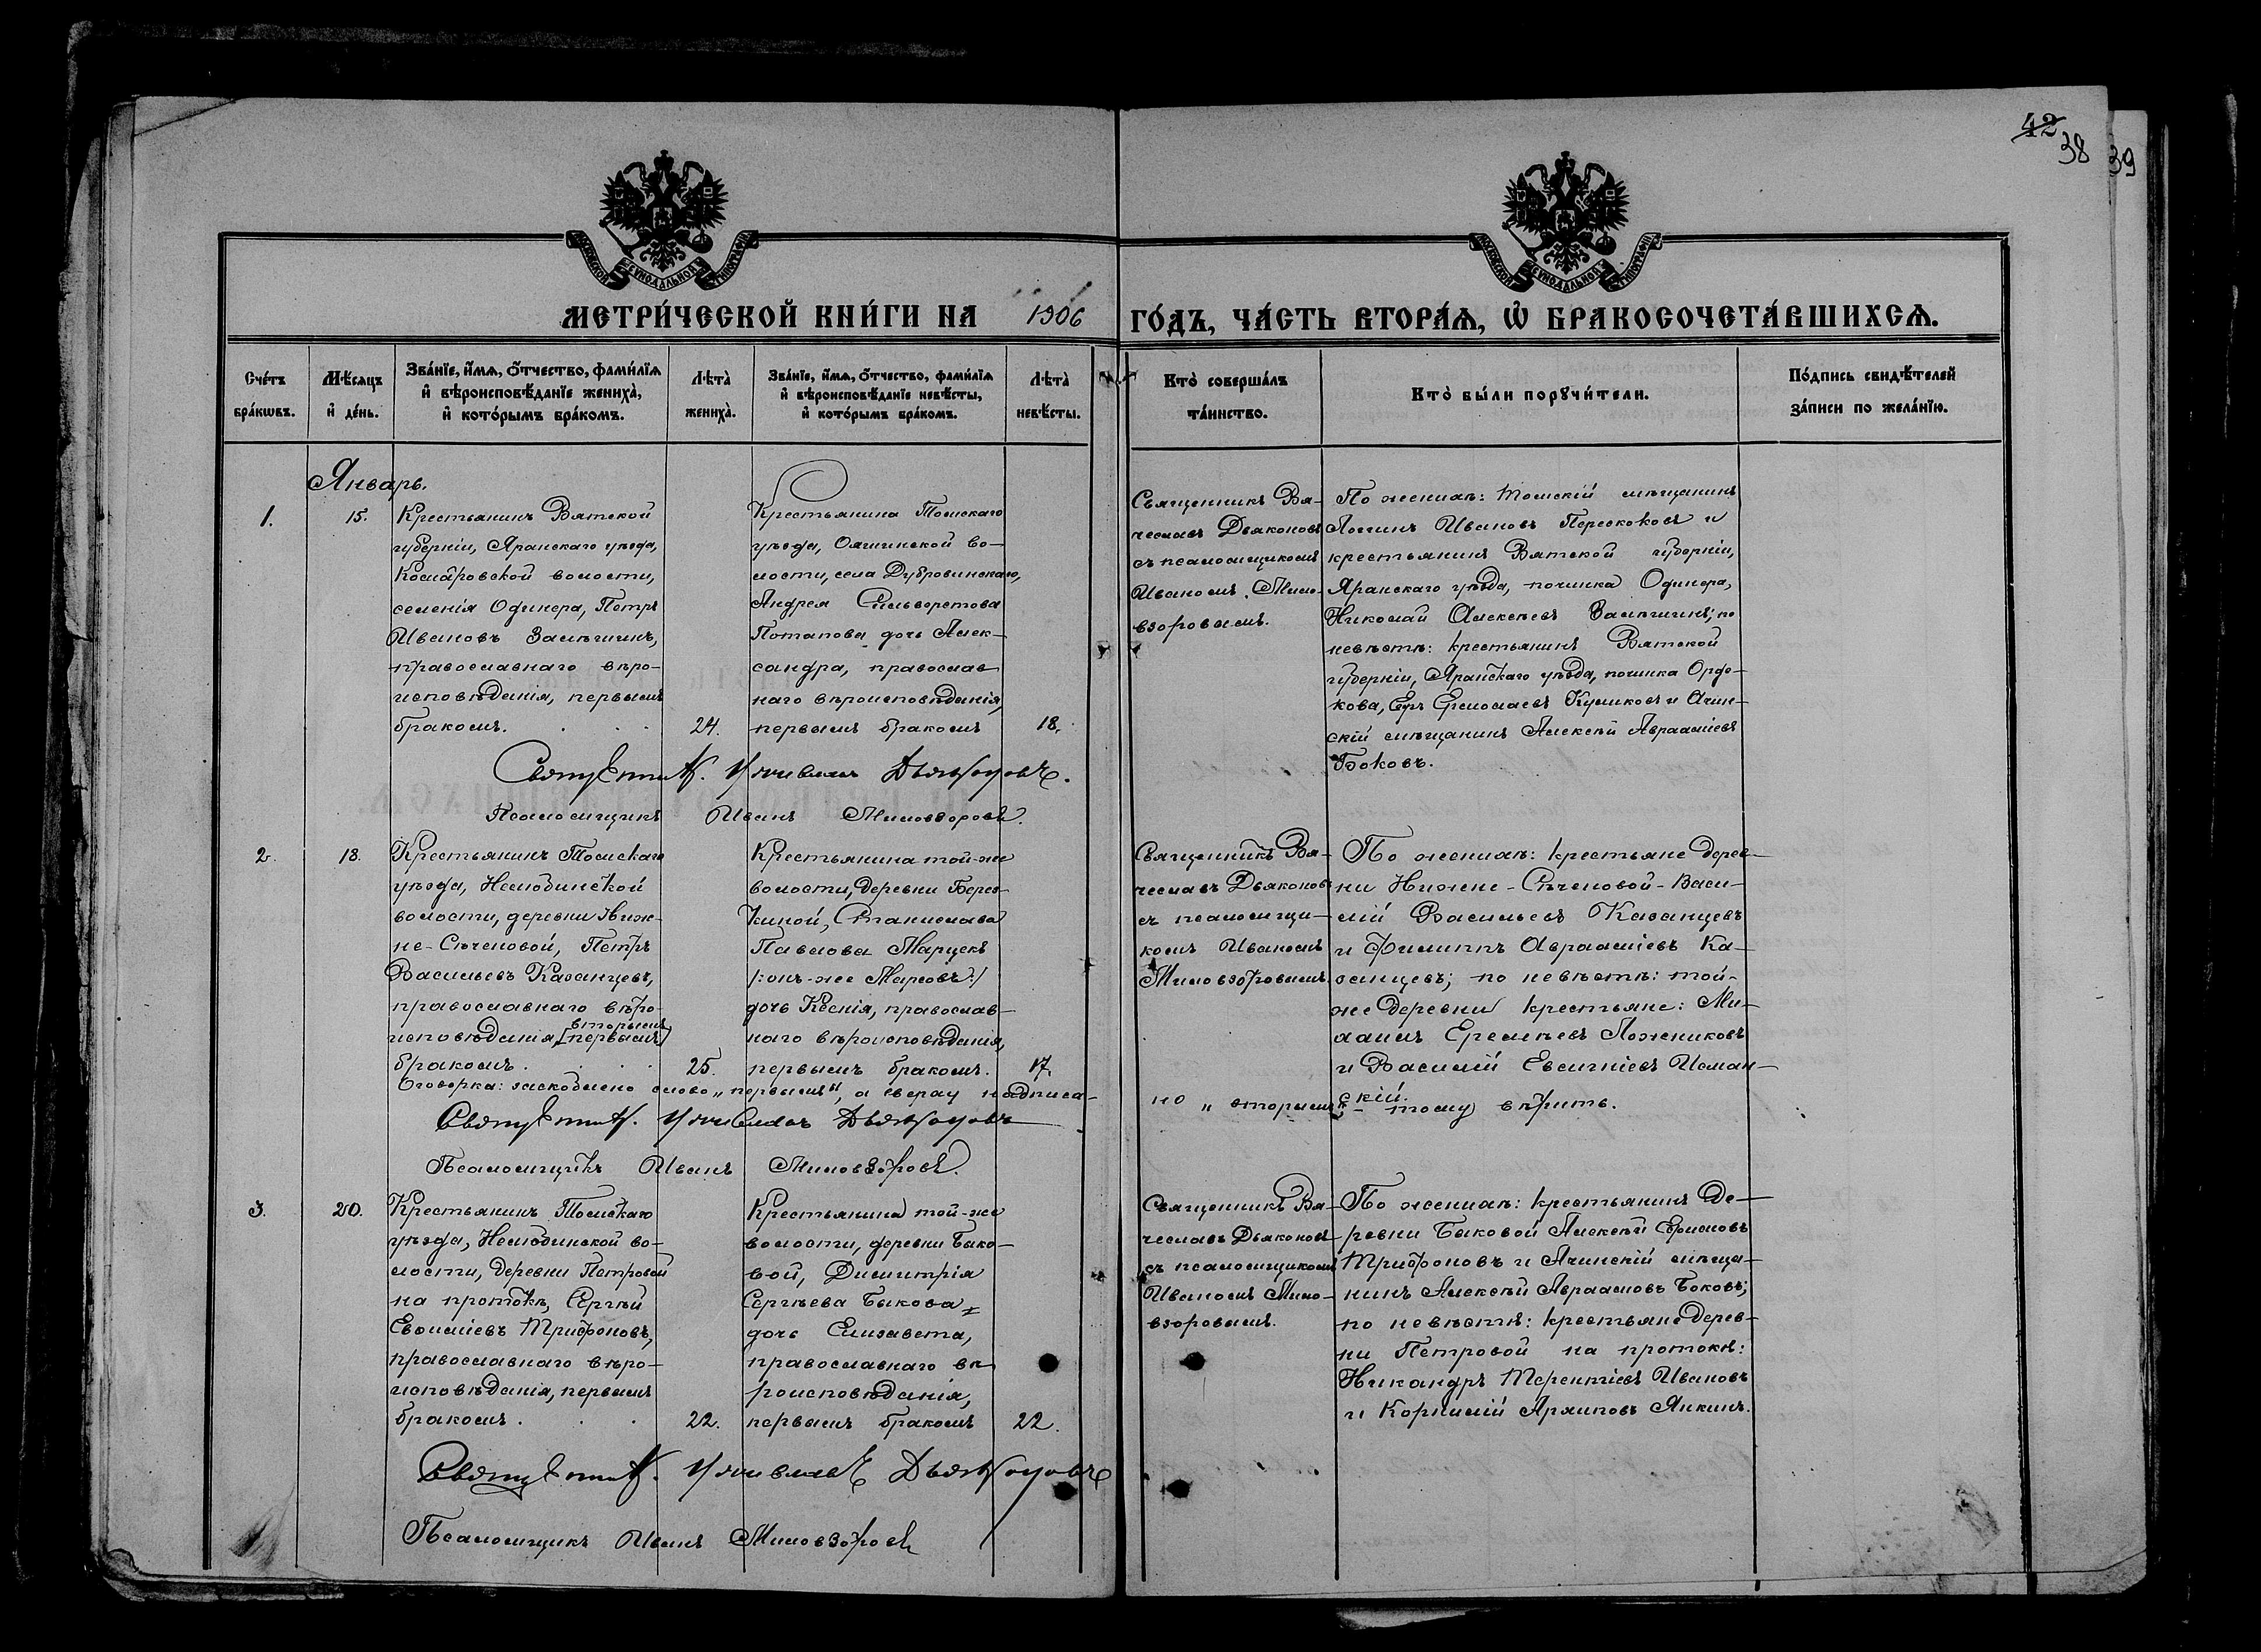 42
38
39
МОСКОВСКОЙ СѴНОДАЛЬНОЙ ТИПОГРАФІИ
МОСКОВСКОЙ СѴНОДАЛЬНОЙ ТИПОГРАФІИ
МЕТРИ́ЧЕСКОЙ КНИ́ГИ НА 1906 ГО́ДЪ, ЧА́СТЬ ВТОРА́Ѧ, Ѽ БРАКОСОЧЕТА́ВШИХСѦ.
Сче́тъ бра́кωвъ.
Мѣ́сяцъ и҆ де́нь.
Зва́нїе, и҆́мѧ, ѻ҆́тчество, фами́лїѧ
и҆ вѣроисповѣ́данїе жениха̀,
и҆ кото́рымъ бра́комъ.
Лѣта̀ жениха̀.
Зва́нїе, и҆́мѧ, ѻ҆́тчество, фами́лїѧ
и҆ вѣроисповѣ́данїе невѣ́сты,
и҆ кото́рымъ бра́комъ.
Лѣта̀ невѣ́сты.
Кто̀ соверша́лъ
та́инство.
Кто̀ бы́ли порꙋчи́тели.
По́дпись свидѣ́телей
за́писи по жела́нїю.
Январь.
1.
15.
Крестьянинъ Вятской
губерніи, Яранскаго уѣзда,
волости,
селенія Одинера, Петръ
Ивановъ
православнаго вѣро-
исповѣданія, первымъ
бракомъ.
24.
Крестьянина Томскаго
уѣзда, Ояшинской во-
лости, села Дубровинскаго,
Андрея Сильверстова
Потапова дочь Алек-
сандра, православ
наго вѣроисповѣданія,
первымъ бракомъ
18.
Священникъ Вя-
чеславъ Дьяконовъ
съ псаломщикомъ
Иваномъ Мило-
взоровымъ.
По женихѣ: Томскій мѣщанинъ
Логгинъ Ивановъ Перескоковъ и
крестьянинъ Вятской губерніи,
Яранскаго уѣзда, починка Одинера,
Николай Алексѣевъ по
невѣстѣ: крестьянинъ Вятской
губерніи, Яранскаго уѣзда, починка Ордо-
кова, Ермолаевъ Куликовъ и Ачин-
скій мѣщанинъ Алексѣй Авраамiевъ
Боковъ.
Священникъ Вячеславъ Дьяконовъ.
Псаломщикъ Иванъ Миловзоровъ.
2.
18.
Крестьянинъ Томскаго
уѣзда, Нелюбинской
волости, деревни Ниж-
не-Сѣченовой, Петръ
Васильевъ Казанцевъ,
православнаго вѣро-
вторымъ
исповѣданія, [первымъ]
бракомъ.
25.
Крестьянина той-же
волости, деревни Берез-
киной, Станислава
Павлова Марцекъ
/:онъ-же
дочь Ксенія, православ-
наго вѣроисповѣданія,
первымъ бракомъ.
17.
Священникъ Вя-
чеславъ Дьяконовъ
съ псаломщи-
комъ Иваномъ
Миловзоровымъ.
По женихѣ: крестьяне дерев-
ни Нижне-Сѣченовой-Васи-
лій Васильевъ Казанцевъ
и Филиппъ Авраамiевъ Ка-
занцевъ; по невѣстѣ: той-
же деревни крестьяне: Ми-
хаилъ Еремѣевъ Ложниковъ
и Василій Евсигніевъ Исман-
скій.
Оговорка: заскоблено слово „первымъ", а сверху надписа-
но „вторымъ" – тому вѣрить.
Священникъ Вячеславъ Дьяконовъ
Псаломщикъ Иванъ Миловзоровъ.
3.
20.
Крестьянинъ Томскаго
уѣзда, Нелюбинской во-
лости, деревни Петровой
на протокѣ, Сергѣй
Евѳиміевъ Трифоновъ,
православнаго вѣро-
исповѣданія, первымъ
бракомъ.
22.
Крестьянина той-же
волости, деревни Быко-
вой, Димитрія
Сергѣева Быкова
дочь Елизавета,
православнаго вѣ
роисповѣданія,
первымъ бракомъ
22.
Священникъ Вя-
чеславъ Дьяконовъ
съ псаломщикомъ
Иваномъ Мило-
взоровымъ.
По женихѣ: крестьянинъ де-
ревни Быковой Алексѣй
Трифоновъ и Ачинскій мѣща-
нинъ Алексѣй Авраамовъ Боковъ;
по невѣстѣ: крестьяне дерев-
ни Петровой на протокѣ:
Никандръ Терентіевъ Ивановъ
и Корнилій Архиповъ Янкинъ.
Священникъ Вячеславъ Дьяконовъ
Псаломщикъ Иванъ Миловзоровъ